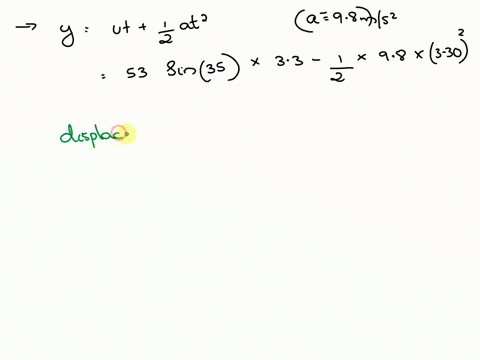 → y = ut + 1/2 at² (a = 9.8 m/s²
= 53 Sin(35) × 3.3 − 1/2 × 9.8 × (3.30)²
displac